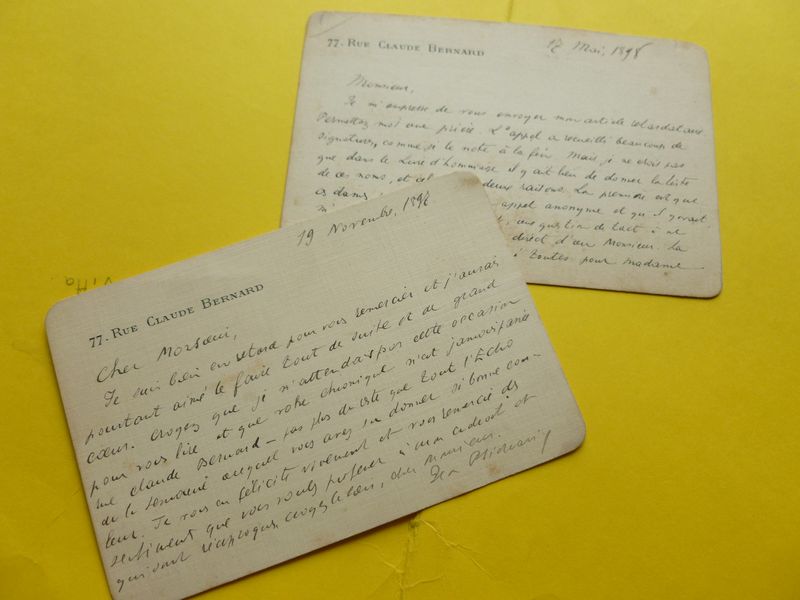 77. RUE CLAUDE BERNARD
17 Mai, 1898
Monsieur,
Je m'empresse de vous envoyer mon article retardataire
Permettez moi une prière. L'appel a recueilli beaucoup de
signatures, comme si le note à la fin. Mais, je ne crois pas
que, dans le Livre d'hommage il y ait lieu de donner la liste
de ces noms, et cel deux raisons. La première est que
ces dames
appel anonyme et qu'il y avait
une question de tact à ne
direct d'un Monsieur. La
à toutes pour Madame
19 Novembre, 1898
77. RUE CLAUDE BERNARD
Cher Monsieur,
Je suis bien en retard pour vous remercier et j'aurais
pourtant aimé le faire tout de suite et de grand
cœur. Croyez que je n'attendais pas cette occasion
pour vous lire et que votre chronique n'est jamais passée
rue Claude Bernard — pas plus du reste que tout l'Echo
de la semaine auquel vous avez su donner si bonne cou-
leur. Je vous en félicite vivement et vous remercie des
sentiments que vous voulez professer à mon endroit et
qui sont réciproques, croyez le bien, cher Monsieur.